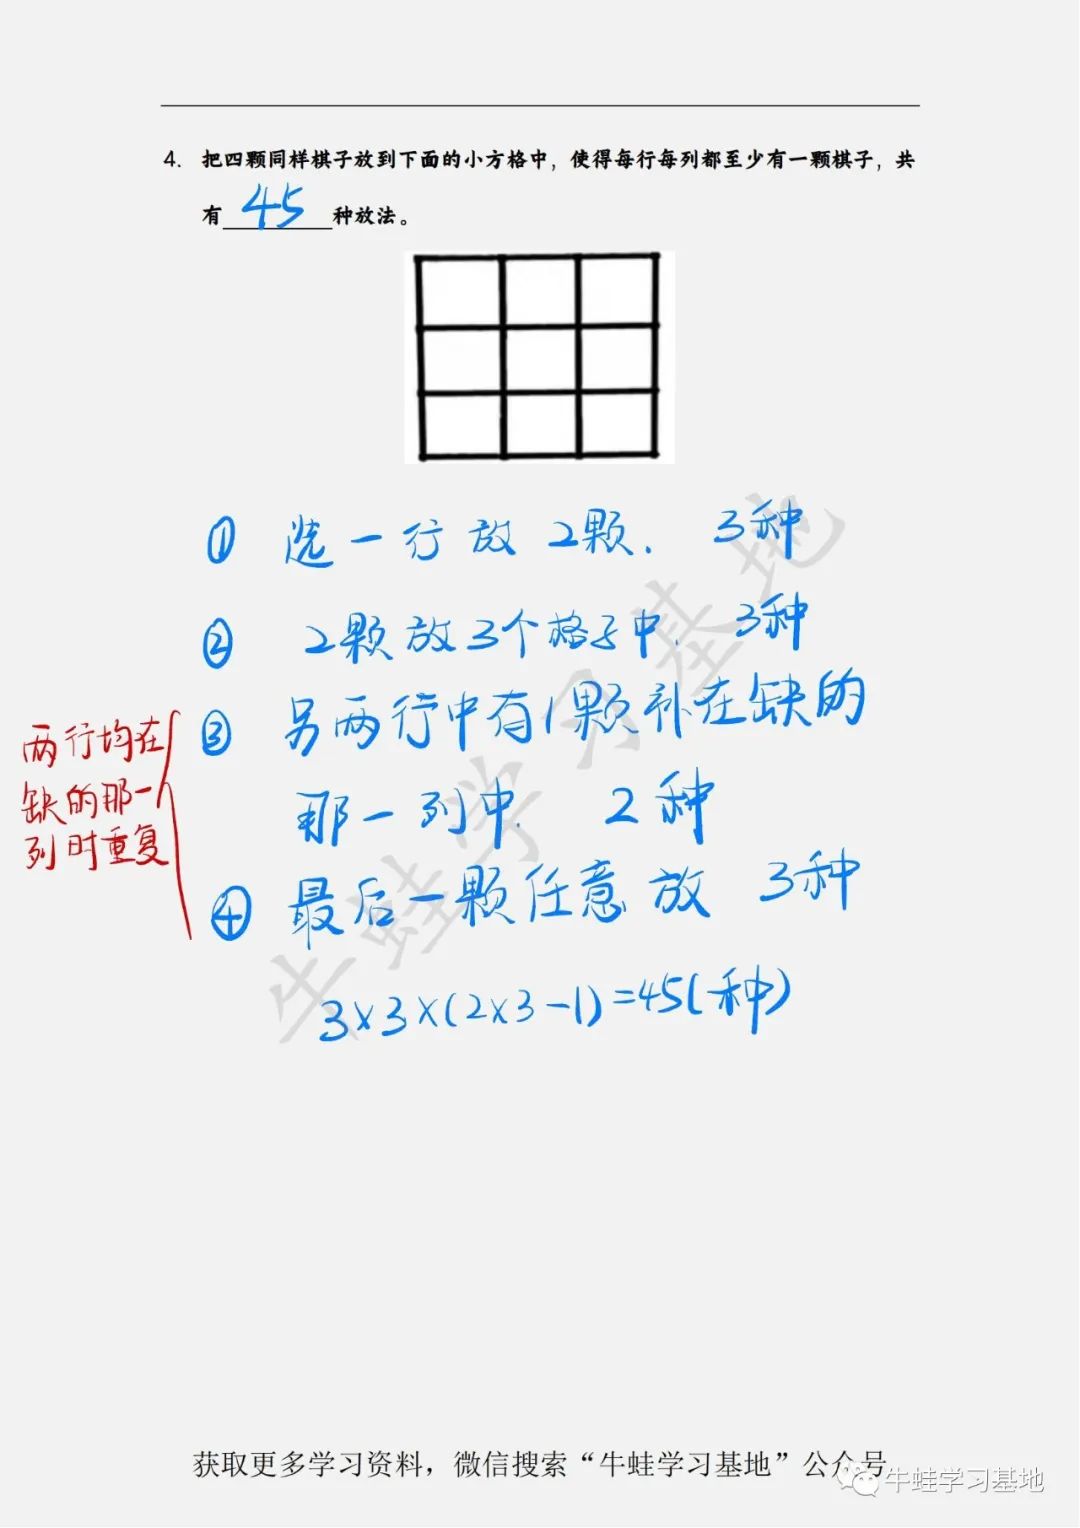 4. 把四颗同样棋子放到下面的小方格中，使得每行每列都至少有一颗棋子，共
有 45 种放法。
① 选一行放2颗. 3种
② 2颗放3个格子中. 3种
③ 另两行中有1颗补在缺的
那一列中. 2种
④ 最后一颗任意放 3种
两行均在
缺的那一
列时重复
3×3×(2×3-1)=45(种)
牛蛙学习基地
获取更多学习资料，微信搜索“牛蛙学习基地”公众号
牛蛙学习基地